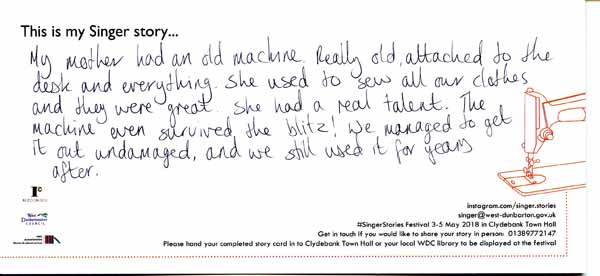 This is my Singer story...
My mother had an old machine. Really old, attached to the
desk and everything. She used to sew all our clothes
and they were great. She had a real talent. The
machine even survived the blitz! We managed to get
it out undamaged, and we still used it for years
after.
West
Dunbartonshire
COUNCIL
instagram.com/singer.stories
singer@west-dunbarton.gov.uk
#SingerStories Festival 3-5 May 2018 in Clydebank Town Hall
Get in touch if you would like to share your story in person: 01389772147
Please hand your completed story card in to Clydebank Town Hall or your local WDC library to be displayed at the festival